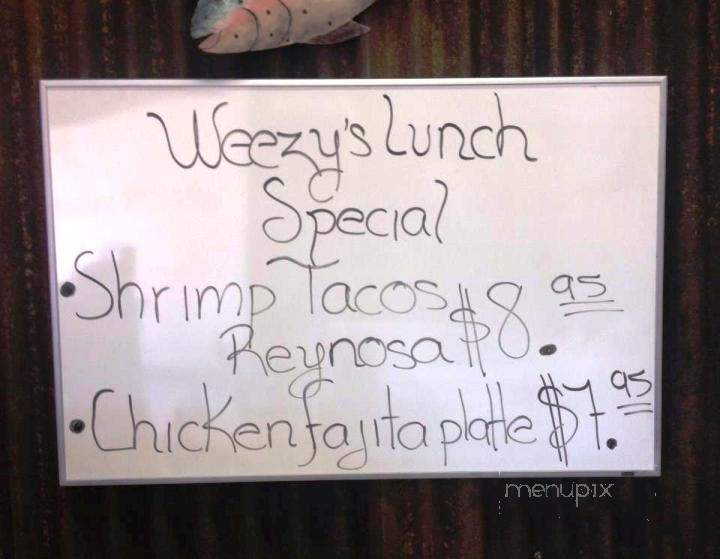 Weezy's Lunch
Special
• Shrimp Tacos
Reynosa $8.95
• Chicken fajita platte $7.95
menupix